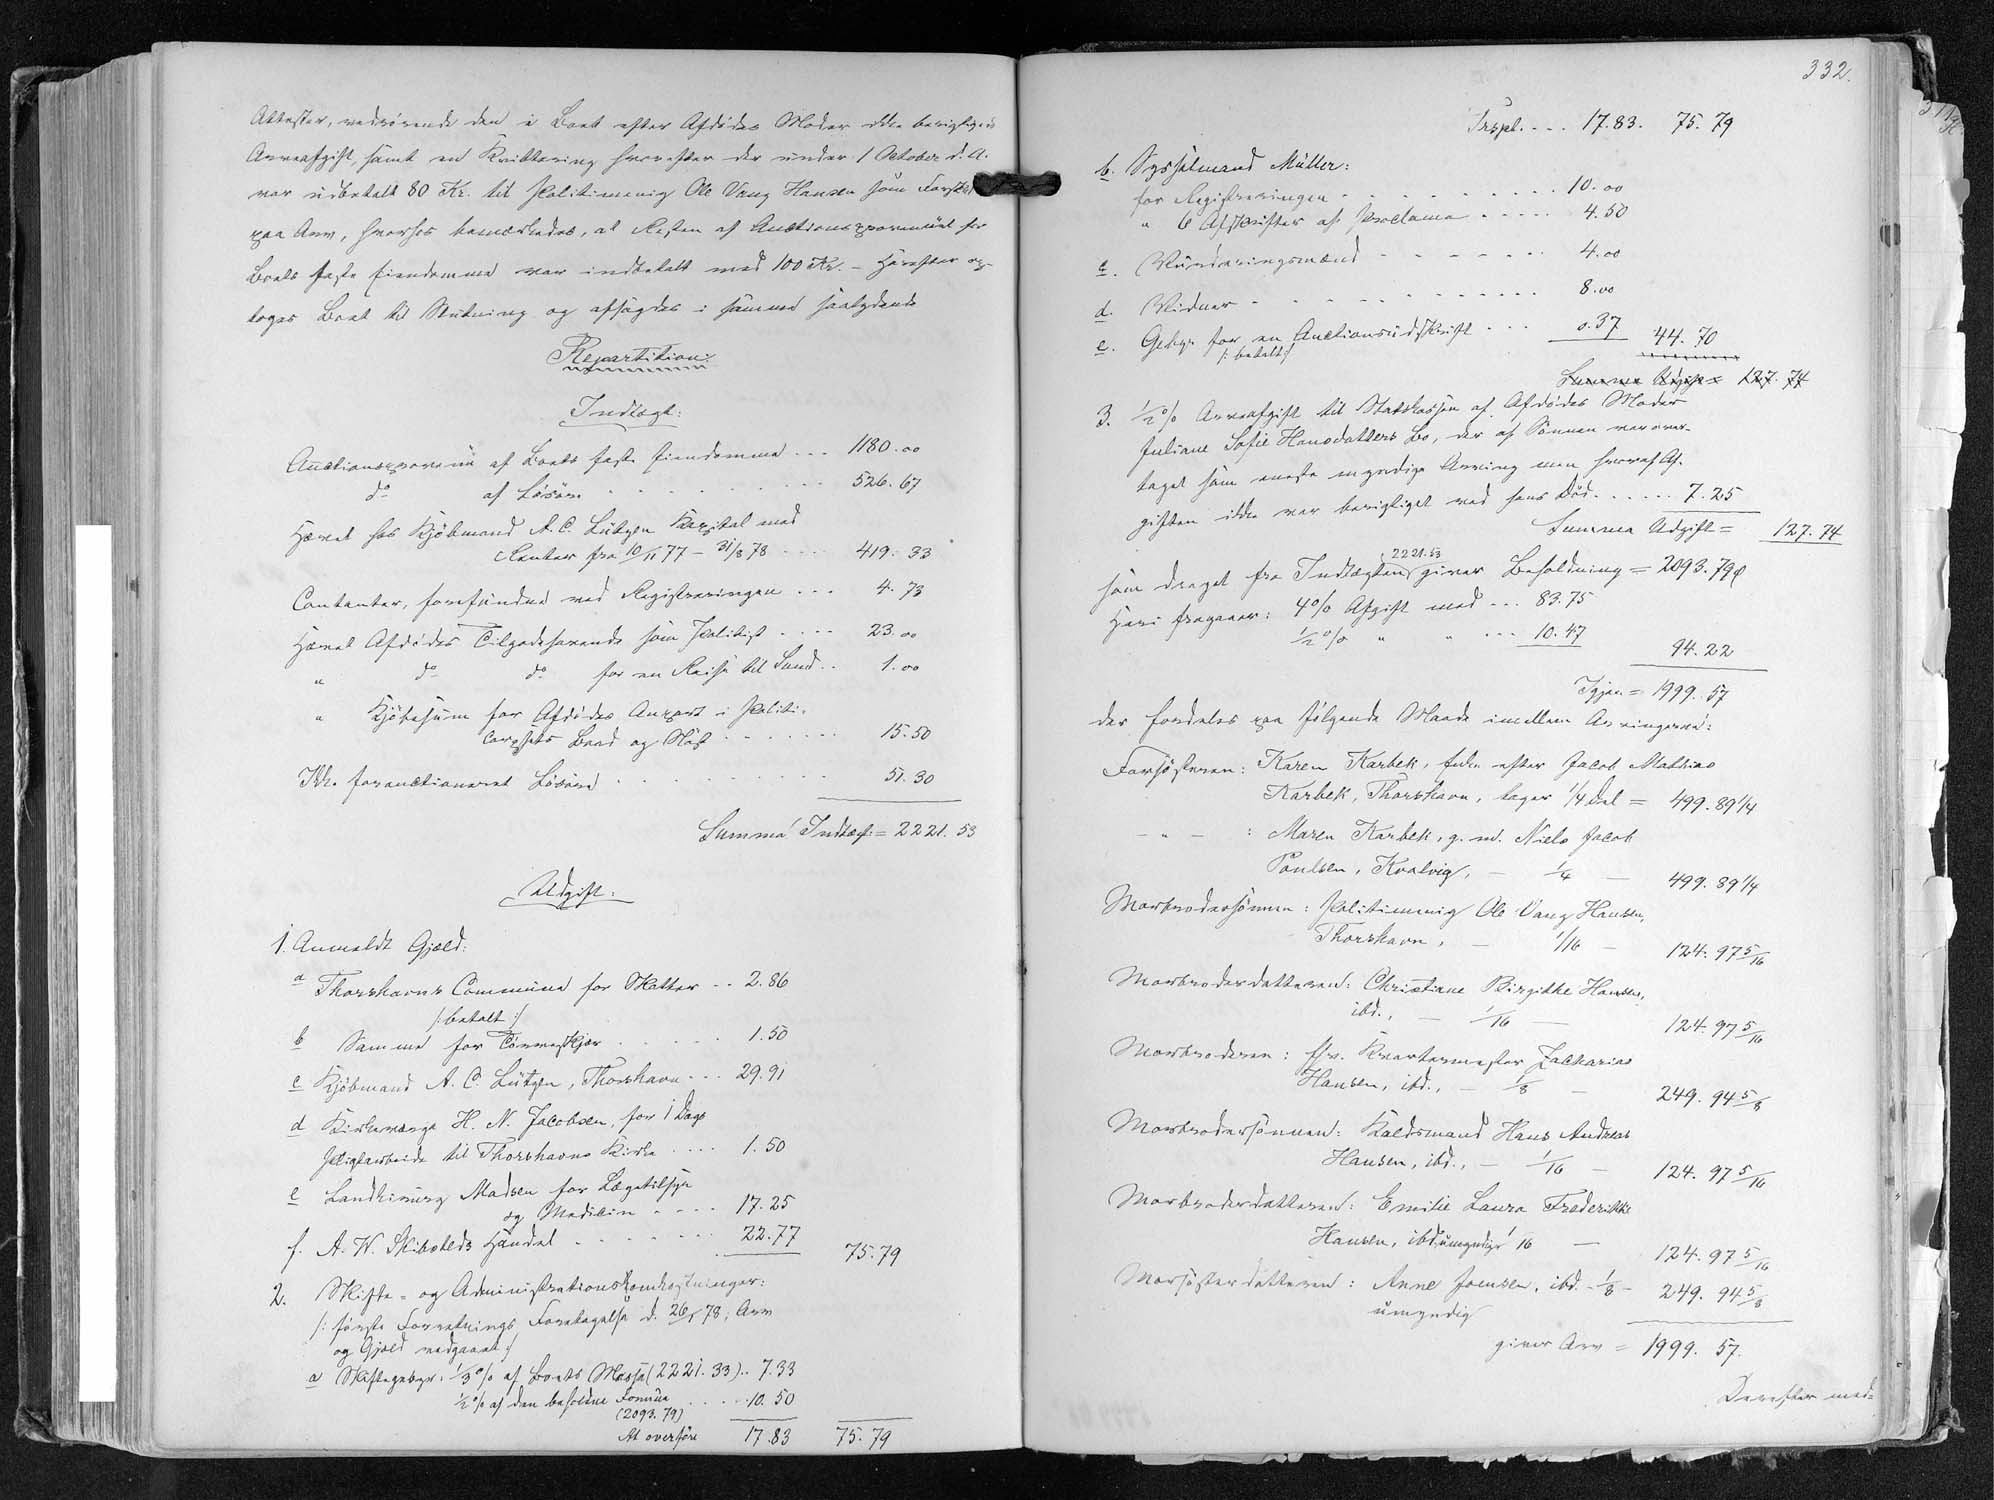 Attester, vedrørende den i Boet efter Afdødes Moder ikke berigtigede
Arveafgift, samt en Kvittering hvorefter der under 1 October d. A.
var udbetalt 80 Kr. til Politimenig Ole Vang Hansen som Forskud
paa Arv, hvorhos bemærkedes, at Resten af Auctionsprovenuet for
Boets faste Eiendomme var indbetalt med 100 Kr. – Herefter op-
toges Boet til Slutning og afsagdes i samme saalydende
Repartition:
Indtægt:
Auctionsprovenu af Boets faste Eiendomme ... 1180.00
do af Løsøre ... 526.67
Hævet hos Kjøbmand A. C. Lützen Kapital med
Renter fra 10/11 77 – 31/8 78 ... 419.33
Contanter, forefundne ved Registreringen ... 4.73
Hævet Afdødes Tilgodehavende som Politist ... 23.00
" do do for en Reise til Sund .. 1.00
" Kjøbesum for Afdødes Anpart i Politi-
corpsets Baad og Nøst ... 15.50
Ikke forauctioneret Løsøre ... 51.30
Summa Indtægt = 2221.53
Udgift:
1. Anmeldt Gjæld:
a Thorshavns Commune for Skatter .. 2.86
/: betalt :/
b Samme for Tørveskjær ... 1.50
c Kjøbmand A. C. Lützen, Thorshavn ... 29.91
d Kirkeværge H. N. Jacobsen, for 1 Dags
Pligtarbeide til Thorshavns Kirke .... 1.50
e Landkirurg Madsen for Lægetilsyn
og Medicin .... 17.25
f. A. W. Skibsteds Handel ... 22.77 75.79
2. Skifte- og Administrationsomkostninger:
/: første Forretnings Foretagelse d. 26/8 78; Arv
og Gjæld vedgaaet :/
a Skiftegebyr: 1/3 % af Boets Masse (2221.33) .. 7.33
1/2 % af den beholdne Formue .... 10.50
(2093.79)
At overføre 17.83 75.79
332.
Trspt. ... 17.83. 75.79
b. Sysselmand Müller:
for Registreringen ... 10.00
" 6 Afskrifter af Proclama ..... 4.50
c. Vurderingsmænd ... 4.00
d. Vidner ... 8.00
e. Gebyr for en Auctionsudskrift ... 0.37 44.70
/: betalt :/
Summa Udgift = 127.74
3. 1/2 % Arveafgift til Statskassen af Afdødes Moder
Juliane Sofie Hansdatters Bo, der af Sønnen var over-
taget som eneste myndige Arving men hvoraf Af-
giften ikke var berigtiget ved hans Død ...... 7.25
Summa Udgift = 127.74
som draget fra Indtægten 2221.53 giver Beholdning = 2093.79
Heri fragaaer: 4 % Afgift med ... 83.75
1/2 % " " ... 10.47
94.22
Igjen = 1999.57
der fordeles paa følgende Maade imellem Arvingerne:
Farsøsteren: Karen Karbek, Enke efter Jacob Mathias
Karbek, Thorshavn, tager 1/4 Del = 499.89 1/4
– " – : Maren Karbek, g. m. Niels Jacob
Poulsen, Kvalvig, – 1/4 – 499.89 1/4
Morbrodersønnen: Politimenig Ole Vang Hansen,
Thorshavn, – 1/16 – 124.97 5/16
Morbroderdatteren: Christiane Birgitte Hansen,
ibd., – 1/16 – 124.97 5/16
Morbroderen: fhv. Kvartermester Zacharias
Hansen, ibd., – 1/8 – 249.94 5/8
Morbrodersønnen: Hans Andreas
Hansen, ibd., – 1/16 – 124.97 5/16
Morbroderdatteren: Emilie Laura Frederikke
Hansen, ibd. umyndige 1/16 – 124.97 5/16
Morsøsterdatteren: Anne Joensen, ibd. – 1/8 – 249.94 5/8
umyndig
giver Arv = 1999.57.
Derefter med-